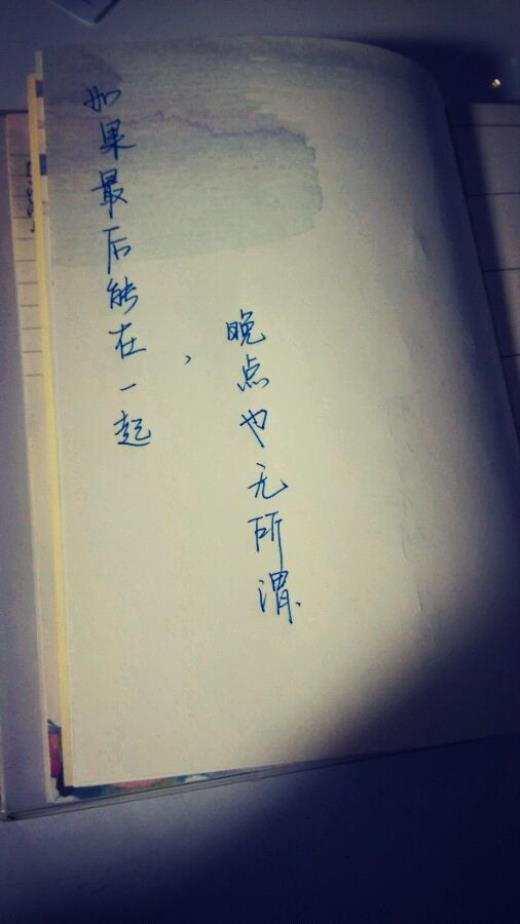 如果最后能在一起，
晚点也无所谓.